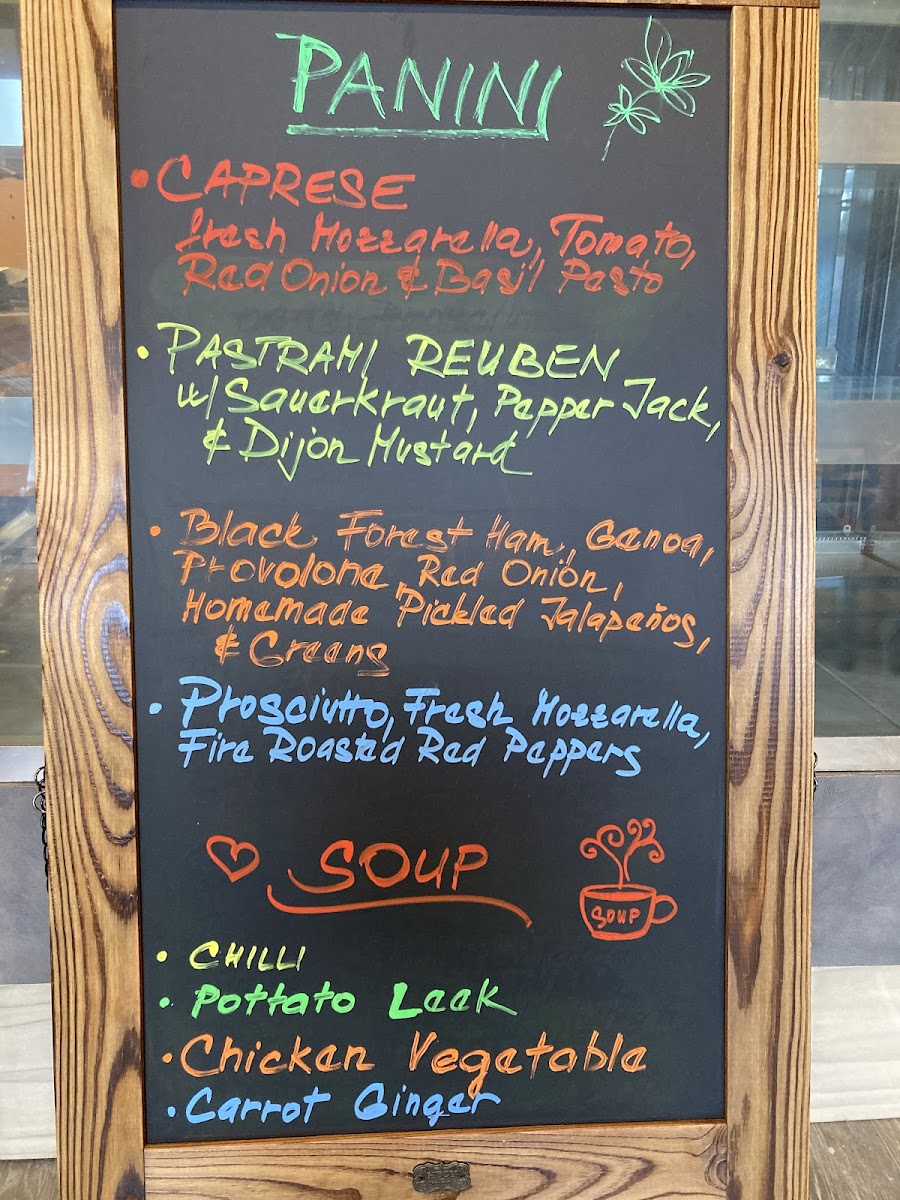 PANINI
• CAPRESE
fresh Mozzarella, Tomato,
Red Onion & Basil Pesto
• PASTRAMI REUBEN
w/ Sauerkraut, Pepper Jack,
& Dijon Mustard
• Black Forest Ham, Genoa,
Provolone, Red Onion,
Homemade Pickled Jalapeños,
& Greens
• Prosciutto, Fresh Mozzarella,
Fire Roasted Red Peppers
SOUP
SOUP
• CHILLI
• Pottato Leek
• Chicken Vegetable
• Carrot Ginger